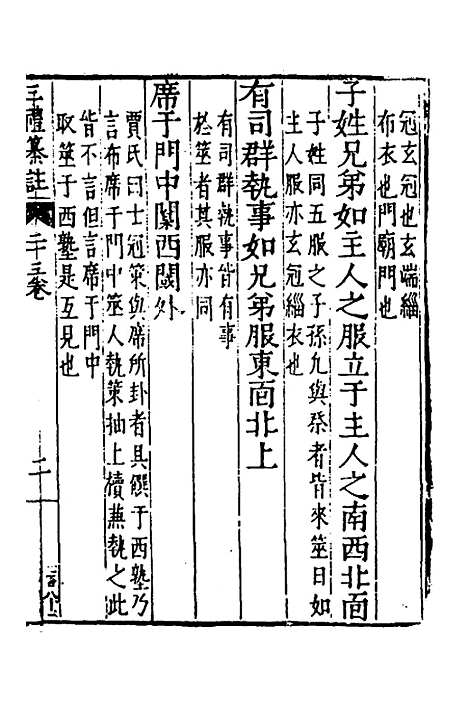 冠玄冠也玄端緇
布衣也門廟門也
子姓兄弟如主人之服立于主人之南西北面
子姓同五服之子孫九與祭者皆來筮日如
主人服亦玄冠緇衣也
有司群執事如兄弟服東面北上
有司群執事皆有事
於筮者其服亦同
席于門中闑西閾外
賈氏曰士冠筮與席所卦者具饌于西塾乃
言布席于門中筮人執筴抽上櫝兼執之此
皆不言但言席于門中
取筮于西塾是互見也
三禮纂註 二十三卷 二十